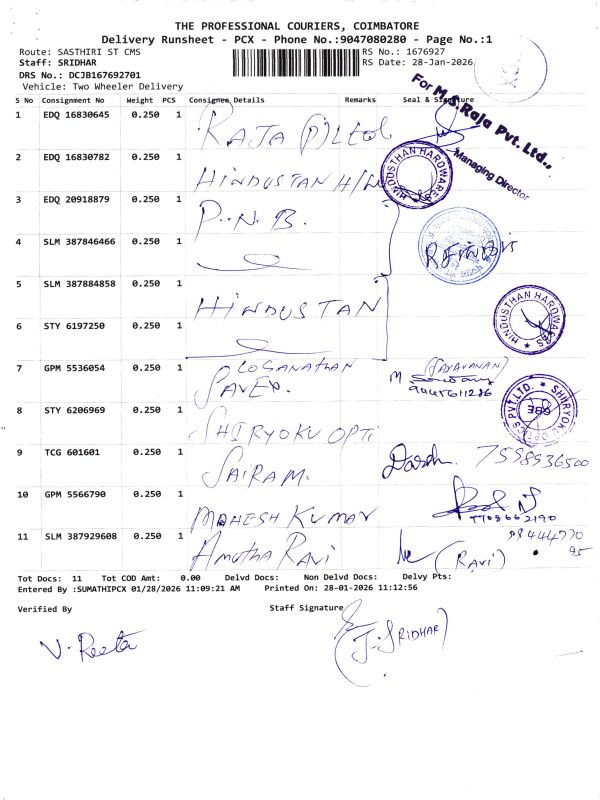 THE PROFESSIONAL COURIERS, COIMBATORE
Delivery Runsheet - PCX - Phone No.:9047080280 - Page No.:1
Route: SASTHIRI ST CMS RS No.: 1676927
Staff: SRIDHAR RS Date: 28-Jan-2026
DRS No.: DCJB167692701
Vehicle: Two Wheeler Delivery
S No Consignment No Weight PCS Consignee Details Remarks Seal & Signature
For M.S.Raja Pvt. Ltd.,
Managing Director
1 EDQ 16830645 0.250 1 RAJA (P) Ltd
2 EDQ 16830782 0.250 1 HINDUSTAN H/W
HINDUSTHAN HARDWARES
3 EDQ 20918879 0.250 1 P.N.B.
4 SLM 387846466 0.250 1
5 SLM 387884858 0.250 1 HINDUSTAN
HINDUSTHAN HARDWARES
6 STY 6197250 0.250 1
7 GPM 5536054 0.250 1 LOGANATHAN
M
8 STY 6206969 0.250 1 SHIRYOKU OPTI
PVT.LTD. SHIRYOK
9 TCG 601601 0.250 1 SAIRAM. Darsh. 7598936500
10 GPM 5566790 0.250 1 MAHESH KUMAR
11 SLM 387929608 0.250 1 Amutha Ravi (RAVI)
Tot Docs: 11 Tot COD Amt: 0.00 Delvd Docs: Non Delvd Docs: Delvy Pts:
Entered By :SUMATHIPCX 01/28/2026 11:09:21 AM Printed On: 28-01-2026 11:12:56
Verified By Staff Signature
V. Reeta (J. SRIDHAR)